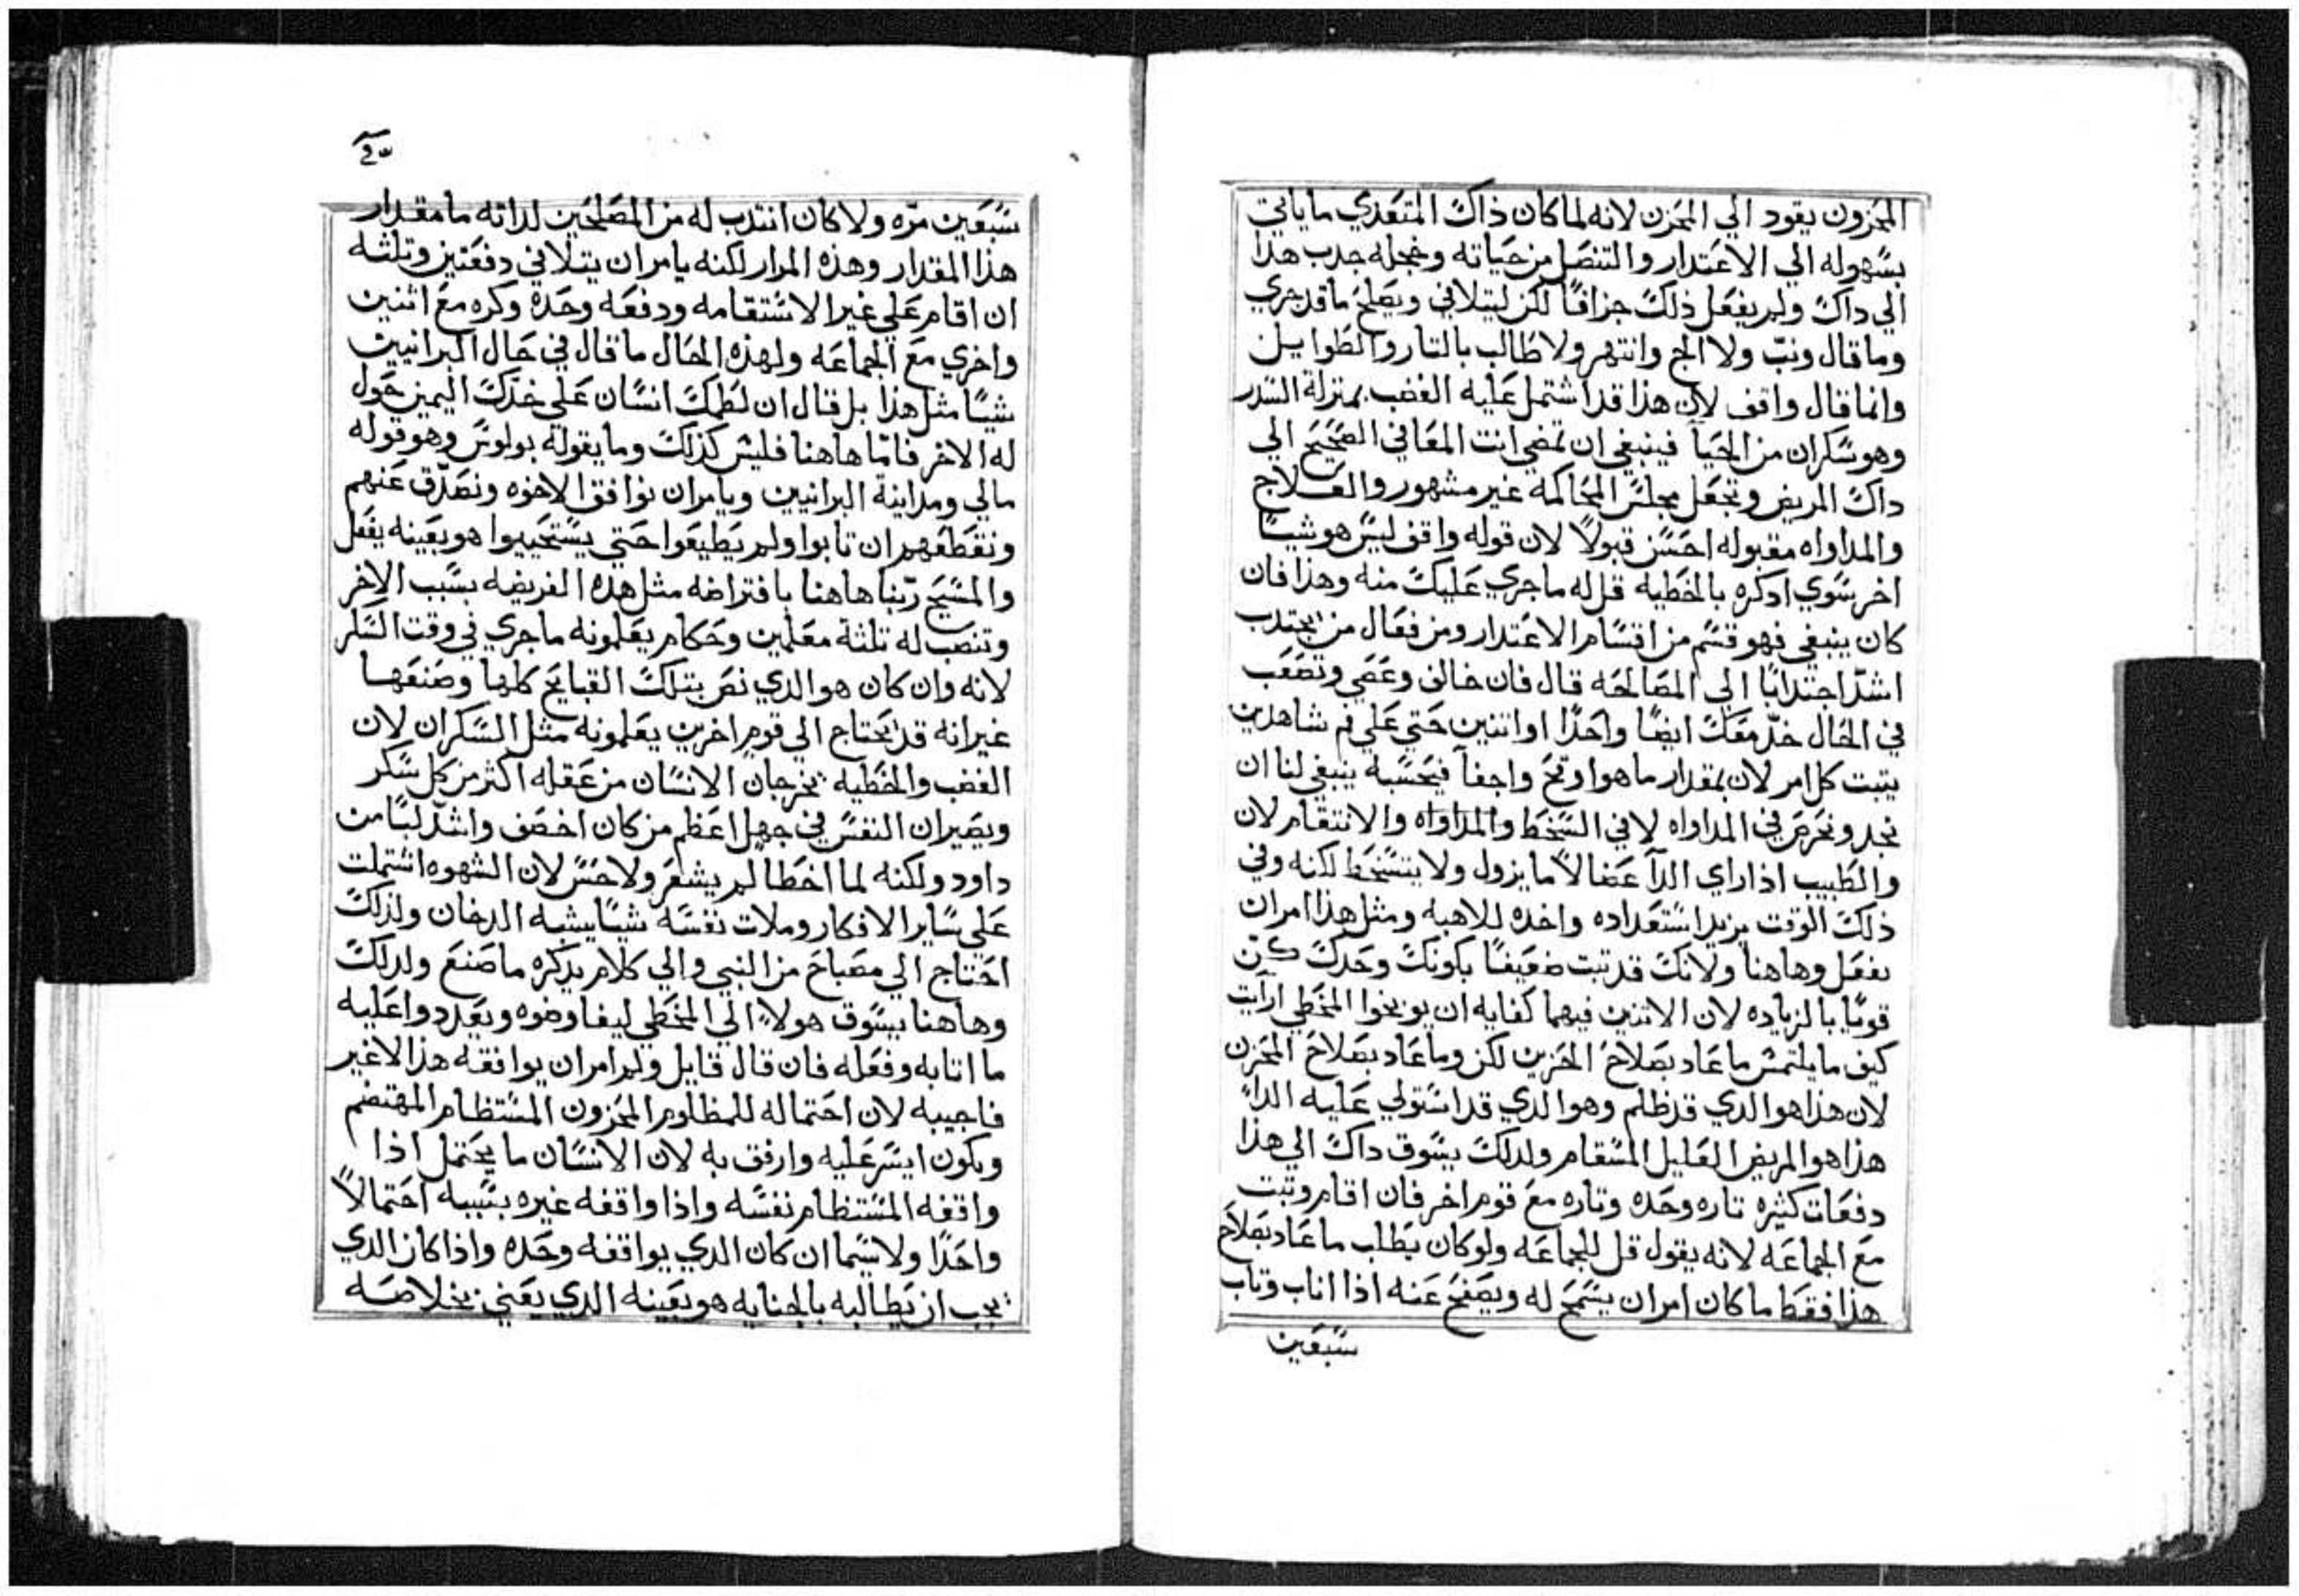 المحزون يقود الي المحزن لانه لما كان ذاك المتعدي ما ياتي
بسهوله الي الاعتدار والتنصل من حياته وخجله جدب هدا
الي داك ولم يفعل ذلك جزافًا لكن ليتلافي ويصلح ما قد جري
وما قال ونب ولا الج وانتهر ولا طالب بالتار والطوايل
وانما قال واقف لان هذا قد اشتمل عليه الغضب بمنزلة السدر
وهو سكران من الحيا فينبغي ان تمضي انت المعافي الصحيح الي
داك المريض وتجعل مجلس المحاكمه غير مشهور والعلاج
والمداواه مقبوله احسن قبولاً لان قوله واقف ليس هو شيا
اخر سوي ادكره بالخطيه قل له ما جري عليك منه وهذا فان
كان ينبغي فهو قسم من اقسام الاعتدار ومن فعال من يجتدب
اشد اجتدابًا الي المصالحه قال فان خالف وعصي وتصعب
في الحال خد معك ايضًا واحدًا او اتنين حتي علي فم شاهدين
يتبت كل امر لان بمقدار ما هو اوقح واجفا فبحسبه ينبغي لنا ان
نجد ونحرص في المداواه لا في السخط والمداواه والانتقام لان
والطبيب اذا راي الدآ عضالاً ما يزول ولا يتسخط لكنه وفي
ذلك الوقت يزيد استعداده واخده للاهبه ومثل هذا امر ان
نفعل وهاهنا ولانك قد تبت ضعيفًا بكونك وحدك كن
قويًا بالزياده لان الاتنين فيهما كفايه ان يوبخوا المخطي ارايت
كيف ما يلتمس ما عاد بصلاح الحزين لكن وما عاد بصلاح المحزن
لان هذا هو الدي قد ظلم وهو الدي قد استولي عليه الداء
هذا هو المريض العليل المسقام ولدلك يسوق داك الي هذا
دفعات كثيره تاره وحده وتاره مع قوم اخر فان اقام وتبت
مع الجماعه لانه يقول قل للجماعه ولو كان يطلب ما عاد بصلاح
هذا فقط ما كان امر ان يسمح له ويصفح عنه اذا اناب وتاب
سبعين
سبعين مره ولا كان انتدب له من المصلحين لداته ما مقدار
هذا المقدار وهذه المرار لكنه يامر ان يتلافي دفعتين وتلثه
ان اقام علي غير الاستقامه ودفعه وحده وكره مع اثنين
واخري مع الجماعه ولهذه الحال ما قال في حال البرانيين
شيًا مثل هذا بل قال ان لطمك انسان علي خدك اليمين حول
له الاخر فاما هاهنا فليس كذلك وما يقوله بولوس وهو قوله
مالي ومداينة البرانيين ويامر ان نوافق الاخوه ونصدق عنهم
ونقطعهم ان تابوا ولم يطيعوا حتي يستحييوا هو بعينه يفعل
والمسيح ربنا هاهنا بافتراضه مثل هده الفريضه بسبب الاخر
وتنصب له تلثة معلمين وحكام يعلمونه ما جري في وقت السكر
لانه وان كان هو الدي نص بتلك القبايح كلها وصنعها
غير انه قد يحتاج الي قوم اخرين يعلمونه مثل السكران لان
الغضب والخطيه يخرجان الانسان من عقله اكثر من كل سكر
ويصيران النفس في جهل اعظم من كان اخصف واشد لبًا من
داود ولكنه لما اخطا لم يشعر ولا حس لان الشهوه اشتملت
علي ساير الافكار وملات نفسه شيًا يشبه الدخان ولذلك
احتاج الي مصباح من النبي والي كلام يدكره ما صنع ولدلك
وهاهنا يسوق هولاء الي المخطي ليفاوضوه ويعددوا عليه
ما اتا به وفعله فان قال قايل ولم امر ان يوافقه هذا لا غير
فاجيبه لان احتماله للمظلوم المحزون المستظام المهتضم
ويكون ايسر عليه وارفق به لان الانسان ما يحتمل اذا
واقفه المستظام نفسه واذا واقفه غيره بسببه احتمالاً
واحدًا ولا سيما ان كان الدي يواقفه وحده واذا كان الدي
يجب ان يطالبه بالجنايه هو بعينه الدي يعني بخلاصه